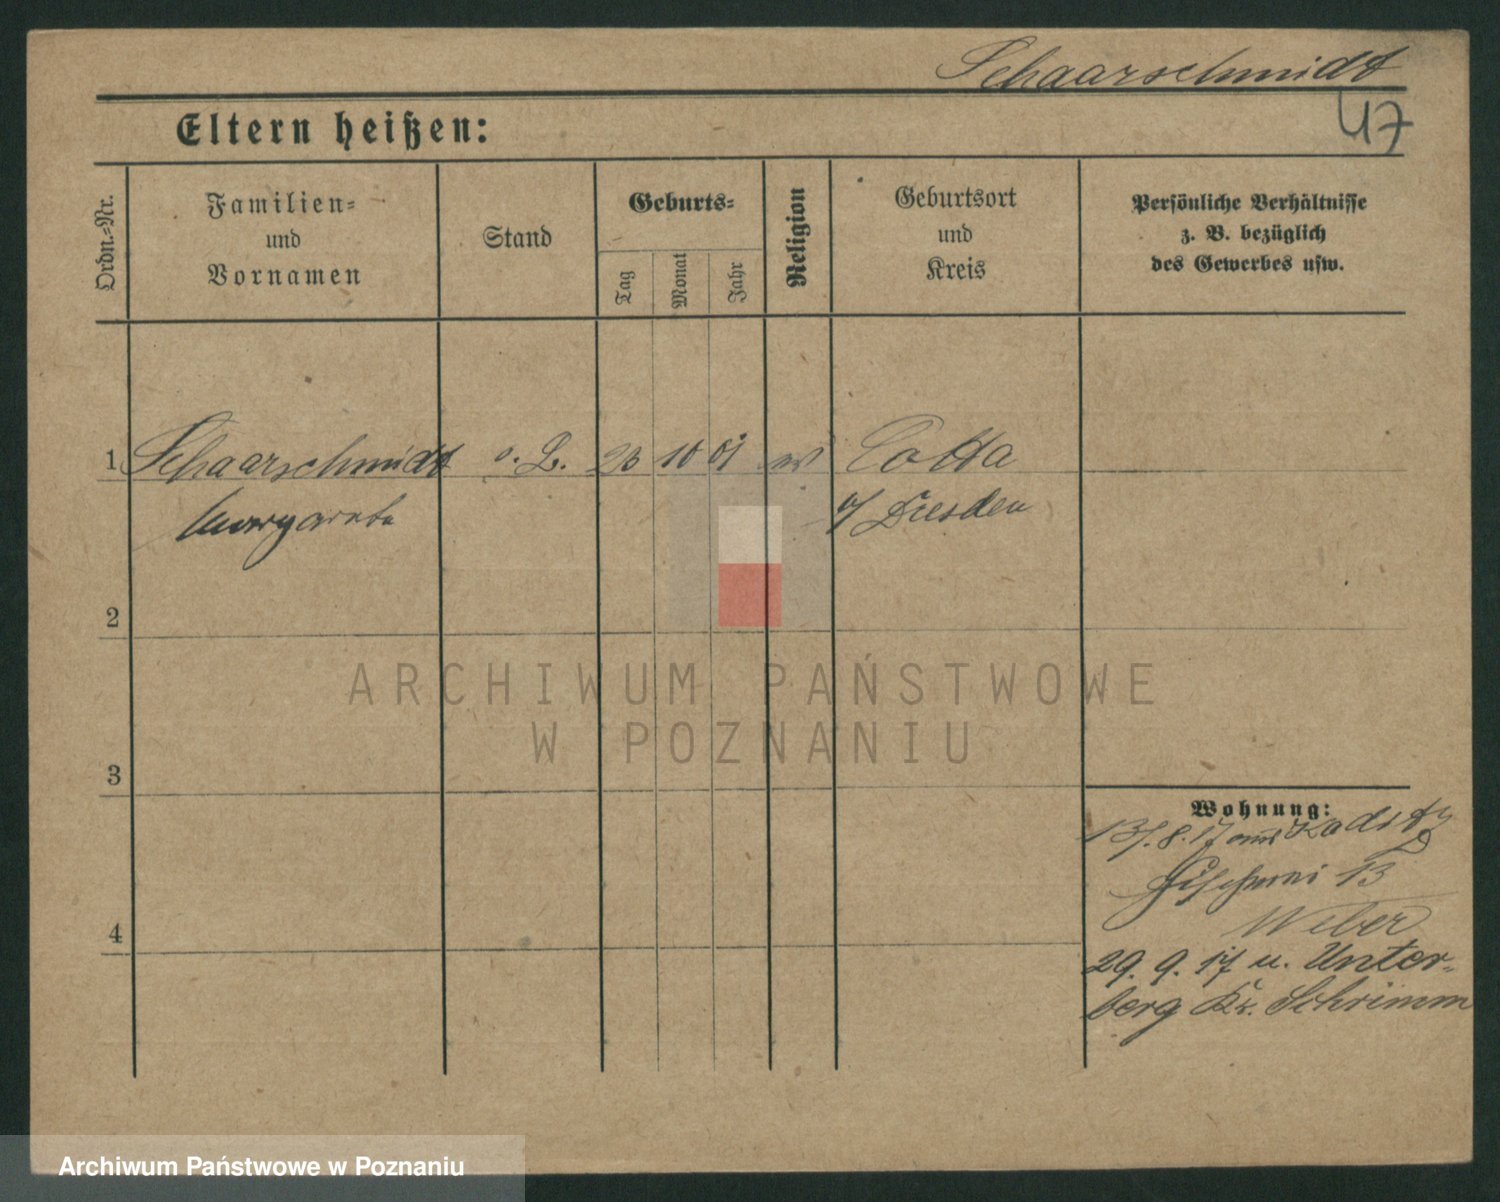 Schaarschmidt
47
Eltern heißen:
Ordn.-Nr.
Familien-
und
Vornamen
Stand
Geburts-
Tag
Monat
Jahr
Religion
Geburtsort
und
Kreis
Persönliche Verhältnisse
z. B. bezüglich
des Gewerbes usw.
1 Schaarschmidt o. L. 23 10 01 ev Cotta
Margarete Dresden
2
3
4
Wohnung:
13/.8.17 aus Kaditz
13
Weber
29. 9. 17 n. Unter-
berg Kr. Schrimm
ARCHIWUM PAŃSTWOWE
W POZNANIU
Archiwum Państwowe w Poznaniu